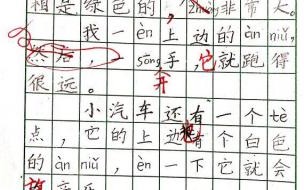 相是绿色的，zhōng非常大。
我一èn上边的àn niǔ，
然后，一sōng手，它就跑得
很远。 开
小汽车还有一个tè
点，它的上边有个白色
的àn niǔ，èn一下它就会
放音乐